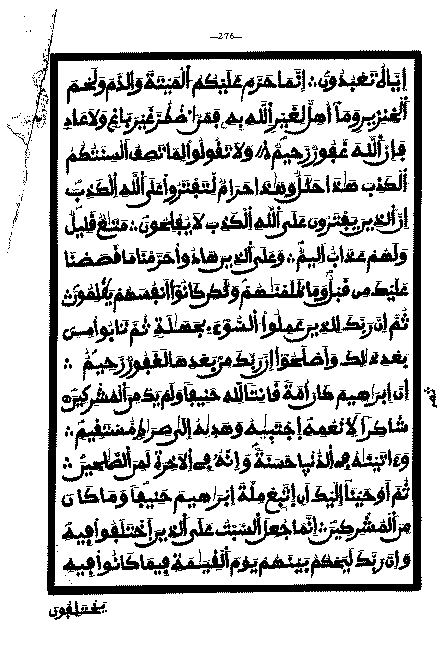 —276—
إياه تعبدون ∴ إنما حرم عليكم الميتة والدم ولحم
الخنزير وما أهل لغير الله به فمن اضطر غير باغ ولا عاد
فإن الله غفور رحيم ∴ ولا تقولوا لما تصف ألسنتكم
الكذب هذا حلل وهذا حرام لتفتروا على الله الكذب
إن الذين يفترون على الله الكذب لا يفلحون ∴ متع قليل
ولهم عذاب أليم ∴ وعلى الذين هادوا حرمنا ما قصصنا
عليك من قبل وما ظلمنهم ولكن كانوا أنفسهم يظلمون
ثم إن ربك للذين عملوا السوء بجهلة ثم تابوا من
بعد ذلك وأصلحوا إن ربك من بعدها لغفور رحيم ∴
إن إبراهيم كان أمة قانتا لله حنيفا ولم يك من المشركين
ثمن
شاكرا لأنعمه اجتبيه وهديه إلى صراط مستقيم ∴
وءاتينه في الدنيا حسنة وإنه في الآخرة لمن الصلحين ∴
ثم أوحينا إليك أن اتبع ملة إبراهيم حنيفا وما كان
من المشركين ∴ إنما جعل السبت على الذين اختلفوا فيه
وإن ربك ليحكم بينهم يوم القيمة فيما كانوا فيه
يختلفون